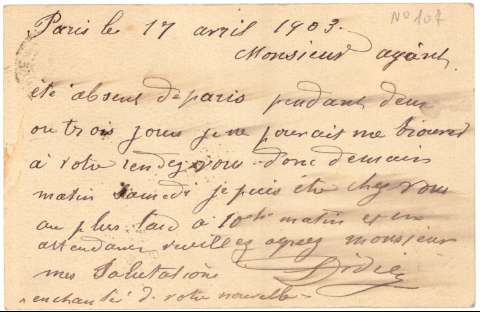 No 107
Paris le 17 avril 1903.
Monsieur ayant
été absent de paris pendant deux
ou trois jours je ne pouvait me trouver
à votre rendez vous donc demain
matin samedi je puis être chez vous
au plus tard à 10h matin et en
attendant veuillez agréez monsieur
mes Salutations Didier
enchanté de votre nouvelle